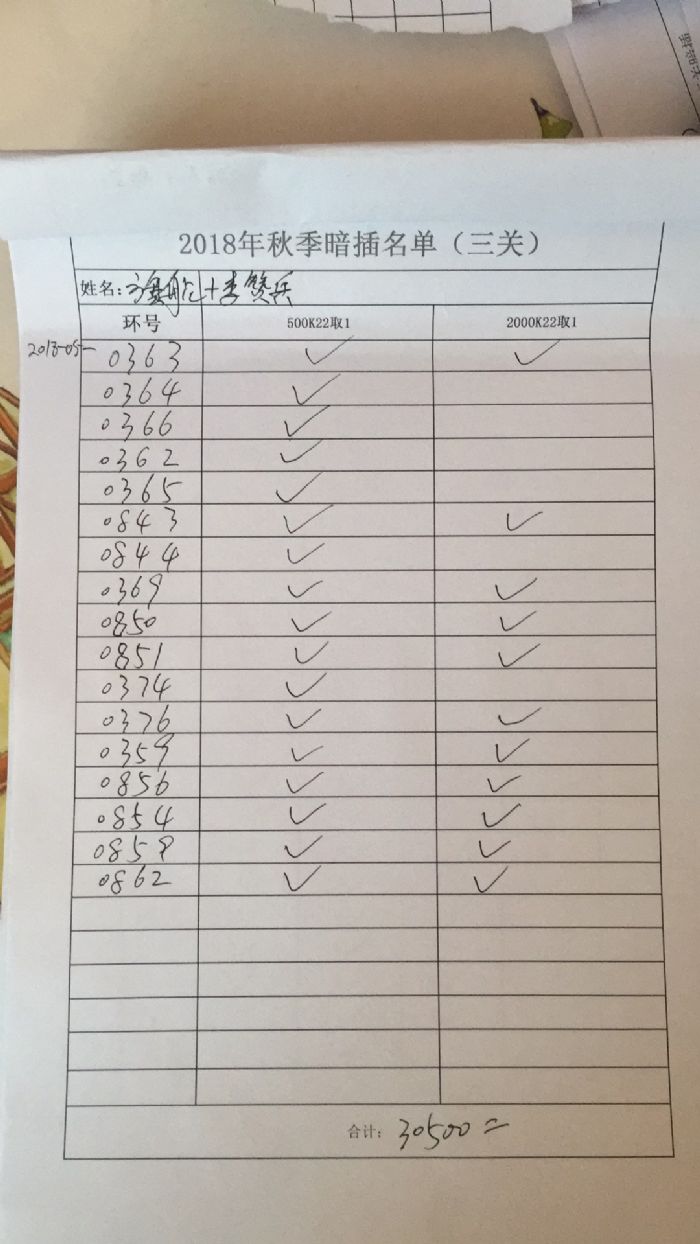 2018年秋季暗插名单（三关）
姓名：李赞兵
环号 500K22取1 2000K22取1
2018-05- 0363 ✓ ✓
0364 ✓
0366 ✓
0362 ✓
0365 ✓
0843 ✓ ✓
0844 ✓
0369 ✓ ✓
0850 ✓ ✓
0851 ✓ ✓
0374 ✓
0376 ✓ ✓
0359 ✓ ✓
0856 ✓ ✓
0854 ✓ ✓
0858 ✓ ✓
0862 ✓ ✓
合计：30500=